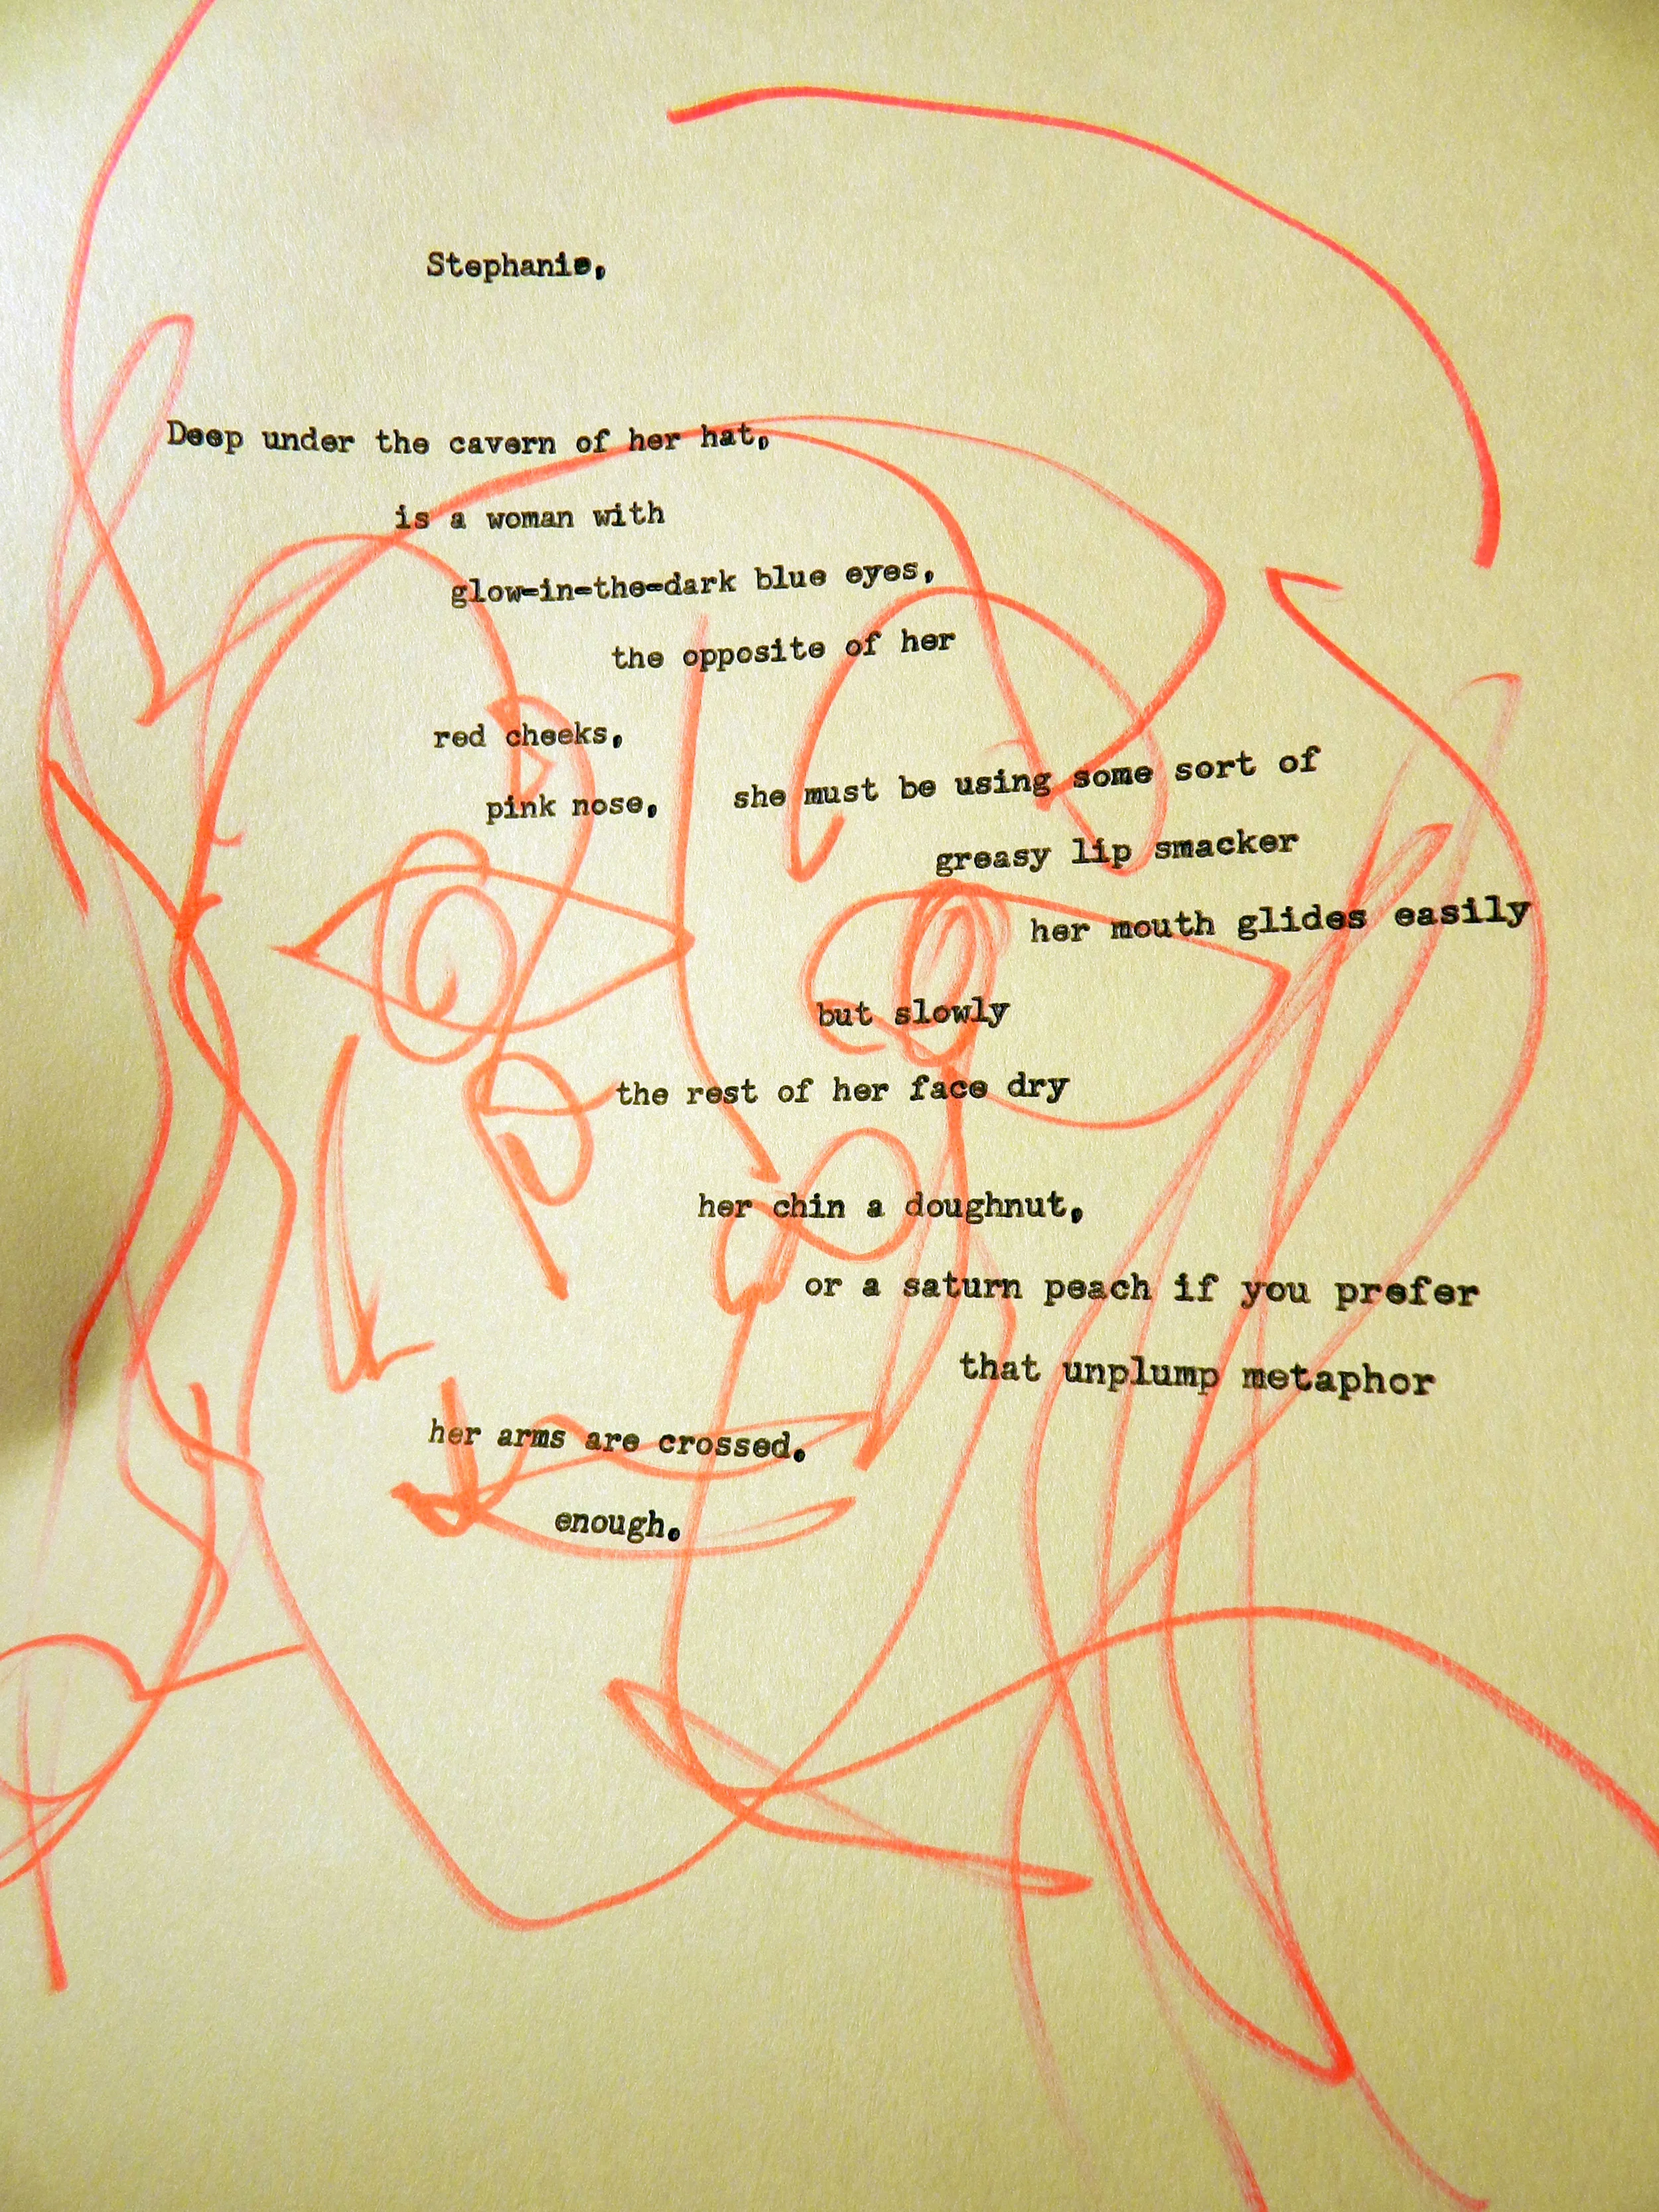 Stephanie,
Deep under the cavern of her hat,
is a woman with
glow-in-the-dark blue eyes,
the opposite of her
red cheeks,
pink nose,
she must be using some sort of
greasy lip smacker
her mouth glides easily
but slowly
the rest of her face dry
her chin a doughnut,
or a saturn peach if you prefer
that unplump metaphor
her arms are crossed.
enough.